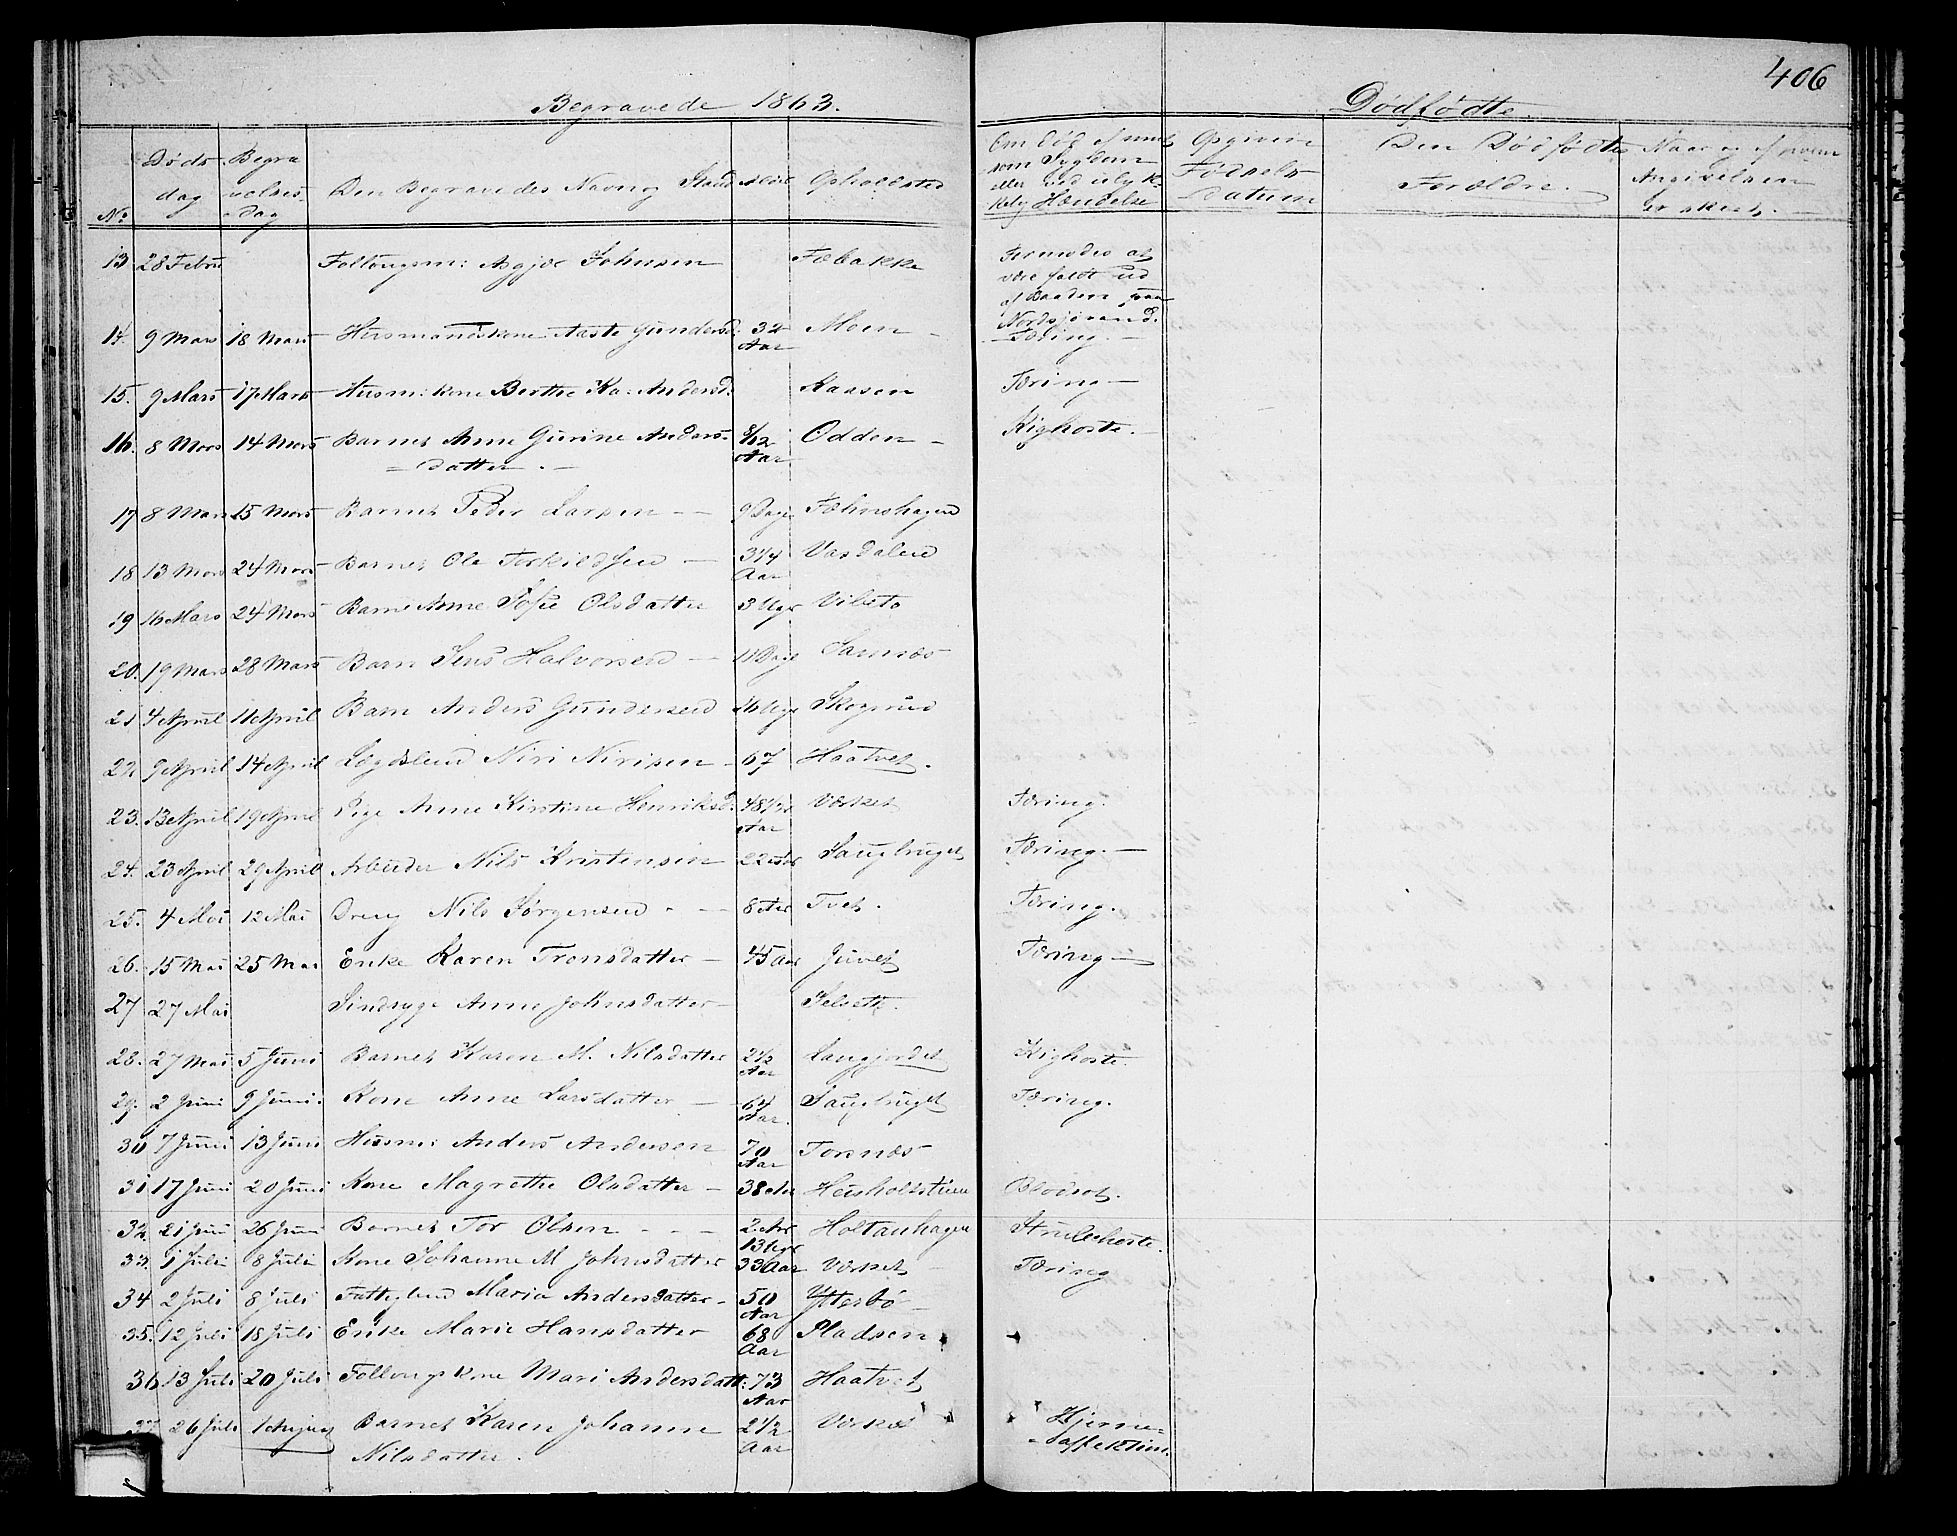 406
Begravede 1863.
Dødfødte.
No
Døds dag
Begravelses dag
Den Begravedes Navn og Stand
Alder
Opholdsted
Om død af smitsom Sygdom eller ved ulykkelig Hændelse
Opgiven Fødsels Datum
Den Dødfødtes Forældre.
Naar og af hvem Angivelsen er skeet.
13 28 Febru Føltougsm: Asgjer Johnsen Fæbakke Formodes at
være faldt ud
af Baaden paa
Nordsjøvand.
14. 9 Mars 18 Mars Husmandskone Aaste Gundersd: 32 Aar Moen Tæring.
15. 9 Mars 17 Mars Husm: kone Berthe Ka: Andersd: Kaasen Tæring
16. 8 Mars 14 Mars Barnet Anne Gurine Anders- 8/12 Aar Odden Kighoste.
datter.
17 8 Mars 15 Mars Barnet Peder Larsen 9 Dage
18 13 Mars 24 Mars Barnet Ole Torkildsen 3 1/4 Aar Vasdalen
19 16 Mars 24 Mars Barn Anne Sofie Olsdatter 3 Uger Vibeto
20. 19 Mars 28 Mars Barn Jens Halvorsen 11 Dage Sannæs
21 4 April 11 April Barn Anders Gundersen 16 Uge Skogrud
22 9 April 14 April Lægdslem Niri Nirisen 67 Haatvet.
23. 13 April 19 April Pige Anne Kirstine Henriksd: 48 1/2 Aar Værket Tæring.
24. 23 April 29 April Arbeider Nils Kristensen 22 Aar Saugbruget Tæring.
25. 4 Mai 12 Mai Dreng Nils Jørgensen 8 Aar Tvet. Tæring.
26. 15 Mai 25 Mai Enke Karen Tronsdatter 45 Aar Juvet Tæring
27 27 Mai Sindsyge Anne Johnsdatter
28. 27 Mai 5 Juni Barnet Karen M. Nilsdatter 2 1/2 Aar Langjordet Kighoste.
29. 2 Juni 9 Juni. Kone Anne Larsdatter 64 Aar. Saugbruget Tæring.
30 7 Juni 13 Juni Husm: Anders Andersen 70 Aar Tornæs
31 17 Juni 20 Juni Kone Magrethe Olsdatter 38 Aar Husholtstuen Blodsot.
32. 21 Juni 26 Juni Barnet Tor Olsen 2 Aar 13 Uger Holtanhagen Strubehoste.
33. 1 Juli 8 Juli Kone Johanne M Johnsdatter 33 Aar Værket Tæring
34 2 Juli 8 Juli Fattiglem Maria Andersdatter 50 Aar Ytterbö
35. 12 Juli 18 Juli Enke Marie Hansdatter 68 Aar Pladsen
36 13 Juli 20 Juli Føltougskone Mari Andersdatt: 73 Aar Haatvet
37 26 Juli 1 August Barnet Karen Johanne 2 1/2 Aar Værket Hjerne-
Nilsdatter. affektion.